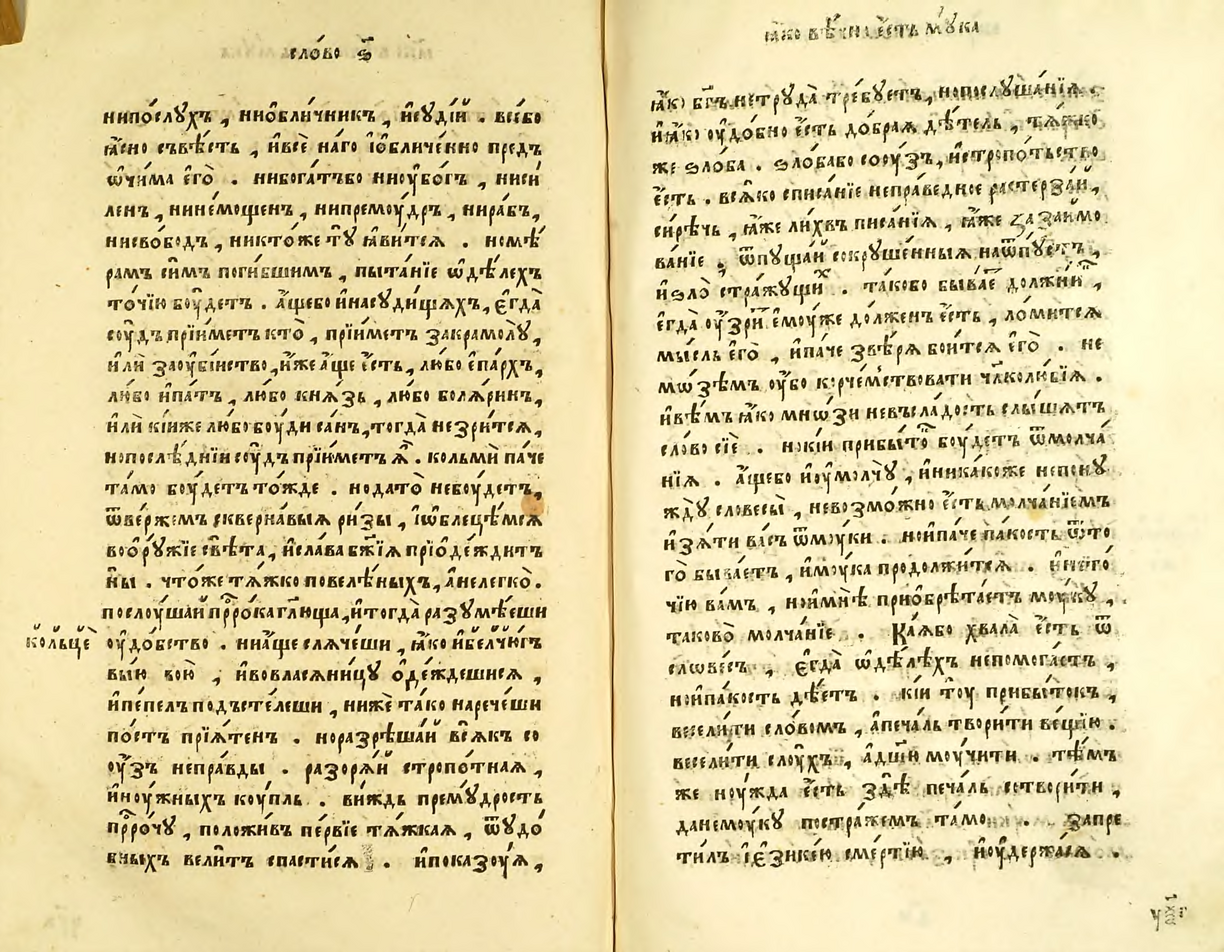 сло́во ѕ҃
нипо́слꙋхъ , ниѡбли́чникъ , нисꙋдїѝ . всебо
ꙗ҆́сно съвѣ́сть , и҆всѐ на́го і҆ѡ҆бличе́нно предъ
ѡ҆чи́ма є҆гѡ̀ . нибога́тъбо ниоу҆бо́гъ , ниси́
ленъ , нине́мощенъ , нипремоу́дръ , нира́бъ ,
нисвобо́дъ , никто́же тꙋ̀ ꙗ҆ви́тсѧ . номѣ́
рамъ си́мъ поги́бшимъ , пыта́нїе ѡ҆дѣ́лехъ
то́чїю бꙋ́детъ . а҆́щебо и҆насꙋди́щѧхъ , є҆гда̀
соу́дъ прїи́метъ кто̀ , прїи́метъ закрамолꙋ̀ ,
и҆лѝ заоу҆бі́йство , и҆́же а҆́ще є҆́сть , лю́бо є҆па́рхъ ,
лю́бо и҆па́тъ , лю́бо кнѧ́зь , лю́бо болѧ́ринъ ,
и҆лѝ кі́иже лю́бо боу́ди са́нъ , тогда̀ незри́тсѧ ,
нопослѣ́днїи соу́дъ прїи́метъ ѧ҆̀ . кольмѝ па́че
та́мо боу́детъ то́жде . нодато̀ небоу́детъ ,
ѿве́ржемъ сквернавы́ѧ ри́зы , і҆ѡ҆блеце́мсѧ
воѻ҆рꙋ́жїе свѣ́та , и҆сла́ва бж҃їѧ прїѡ҆де́ждитъ
ны̀ . что́же тѧ́жко повелѣ́ныхъ , а҆нелегко̀ .
послоу́шай прⷪ҇ро́ка гл҃юща , и҆тогда̀ разꙋмѣ́еши
кольцѐ
оу҆до́бство . ниа҆́ще слѧче́ши , ꙗ҆́ко и҆белчю́гъ
вы́ю своѐю , и҆вовласѧни́цꙋ ѻ҆де́ждешисѧ ,
и҆пе́пелъ подъсте́леши , нижѐ та́ко нарече́ши
по́стъ прїѧ́тенъ . норазрѣша́й всѧ́къ со
оу҆́зъ непра́вды . разорѧ́й стропо́тнаѧ ,
и҆ноу́жныхъ коу́пль . ви́ждь премꙋ́дрость
прⷪ҇ро́чꙋ , положи́въ пе́рвїе тѧ́жкаѧ , ѿꙋдо́
бныхъ вели́тъ спасти́сѧ . и҆показоу́ѧ ,
ꙗ҆́ко вѣ́чна є҆́сть мꙋ́ка
ꙗ҆́кѡ бг҃ъ нетрꙋда̀ тре́бꙋетъ , нопослꙋша́нїѧ .
и҆ꙗ҆́ко оу҆до́бно є҆́сть до́браѧ дѣ́тель , тѧ́жко
же ѕло́ба . ѕло́бабо соꙋ́зъ , и҆стропо́тьство
є҆́сть . всѧ́ко списа́нїе непра́ведное растерза́й ,
си́рѣчь , ꙗ҆́же ли́хвъ писа́нїѧ , ꙗ҆́же за заи́мо
ва́нїе . ѿпꙋща́й сокрꙋше́нныѧ наѿпꙋ́стъ ,
и҆ѕло̀ стра́жꙋщиⷯ . таково̀ быва́еⷮ до́лжнїиⷯ ,
є҆гда̀ оу҆зри́ⷮ є҆мꙋ́же до́лженъ є҆́сть , ло́митсѧ
мы́сль є҆гѡ̀ , и҆па́че звѣ́рѧ бои́тсѧ є҆гѡ̀ . не
мѡ́зѣмъ оу҆̀бо корче́мствовати чл҃колю́бїѧ .
и҆вѣ́мъ ꙗ҆́ко мнѡ́зи невъсла́дость слы́шатъ
сло́во сїѐ . нокі́й прибы́тоⷦ боу́детъ ѿмолча́
нїѧ . а҆́щебо и҆оу҆молчꙋ̀ , и҆никакоже непонꙋ́
ждꙋ словесы̀ , невозмо́жно є҆́сть молча́нїемъ
и҆зѧ́ти ва́съ ѿмоу́ки . нои҆па́че па́кость ѿто
гѡ̀ быва́етъ , и҆моу́ка продолжи́тсѧ . и҆него́
чїю ва́мъ , нои҆мнѣ̀ приѡбрѣта́етъ моу́кꙋ ,
таково̀ молча́нїе . Ка́ѧбо хвала̀ є҆́сть ѿ
слове́съ , є҆гда̀ ѡ҆дѣ́лѣхъ непомога́етъ ,
нои҆па́кость дѣ́етъ . кі́й тоу̀ прибы́токъ ,
весели́ти сло́вомъ , а҆печа́ль твори́ти ве́щїю .
весели́ти слоу́хъ , а҆дш҃ѝ моу́чити . тѣ́мъ
же ноу́жда є҆́сть здѣ̀ печа́ль сотвори́ти ,
данемоу́кꙋ постра́жемъ та́мо . запре
ти́лъ і҆є҆зикі́ю сме́ртїю , и҆оу҆держа́сѧ .